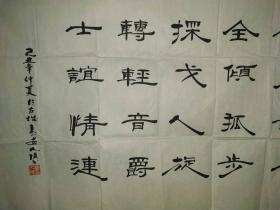 全傾孤步
探戈人旋
轉輕音爵
士誼情連
己丑年仲夏於